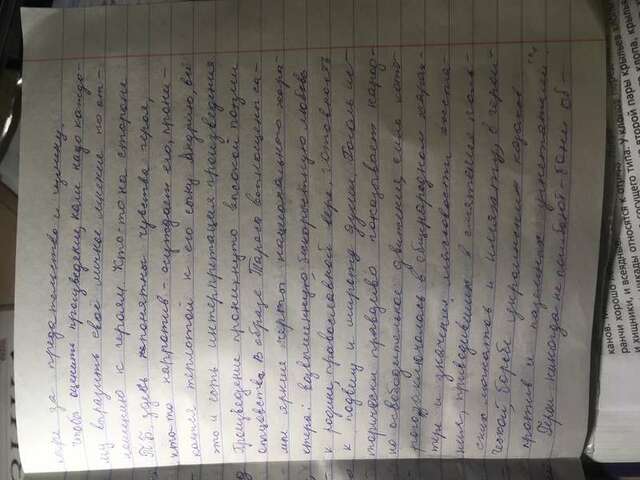 каре за предательство и измену.
Чтобы оценить произведение, нам надо каждо-
му выразить своё личное мнение по от-
ношению к героям. Кто-то на стороне
Т.Б. здесь понятны чувства героя,
кто-то напротив - осуждает его, прони-
кается теплотой к его сыну Андрию, всё
это и есть интерпретация произведения
Произведение проникнуто высокой поэзии
отцовства. В образе Тараса воплощены са-
мые яркие черты национального хара-
ктера: возвышенную, бескорыстную любовь
к родине, православной вере, готовность
к подвигу и широту души. Гоголь ис-
торически правдиво показывает народ-
но освободительное движение, сила кото
рого заключалась в общенародном харак-
тере и значении, массовости восста-
ния, приводивших в смятение поль-
ских магнатов и шляхту, в герои-
ческой борьбе украинских казаков
против и угнетателей
Герои никогда не погибают - они об-
канов. Т
ранчи хорошо
и хищники, и вседные
икады относятся к отря
сосущего типа. У клопов перед
второй пары крыльев
клопа, крылья